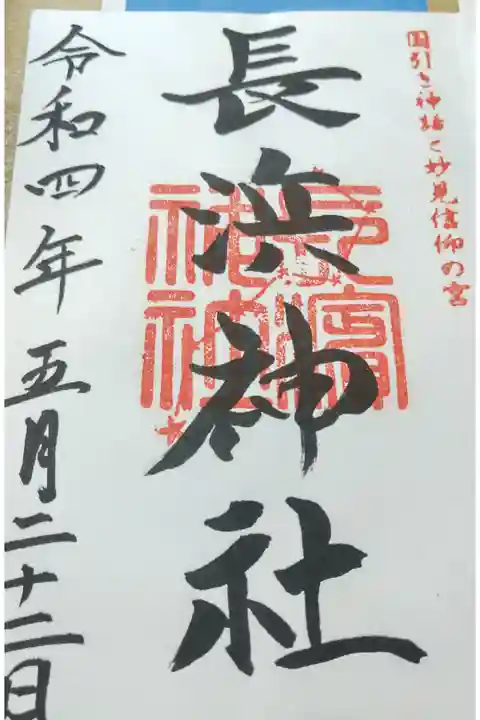 国引き神話と妙見信仰の宮
長浜神社
令和四年五月二十二日